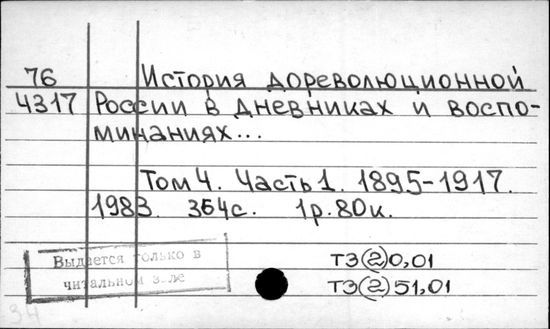 76 История дореволюционной
4317 России в дневниках и воспо-
минаниях...
Том 4. Часть 1. 1895-1917.
1983. 364с. 1р. 80к.
Выдается только в
читальном зале
Т3(2)0,01
Т3(2)51,01
34